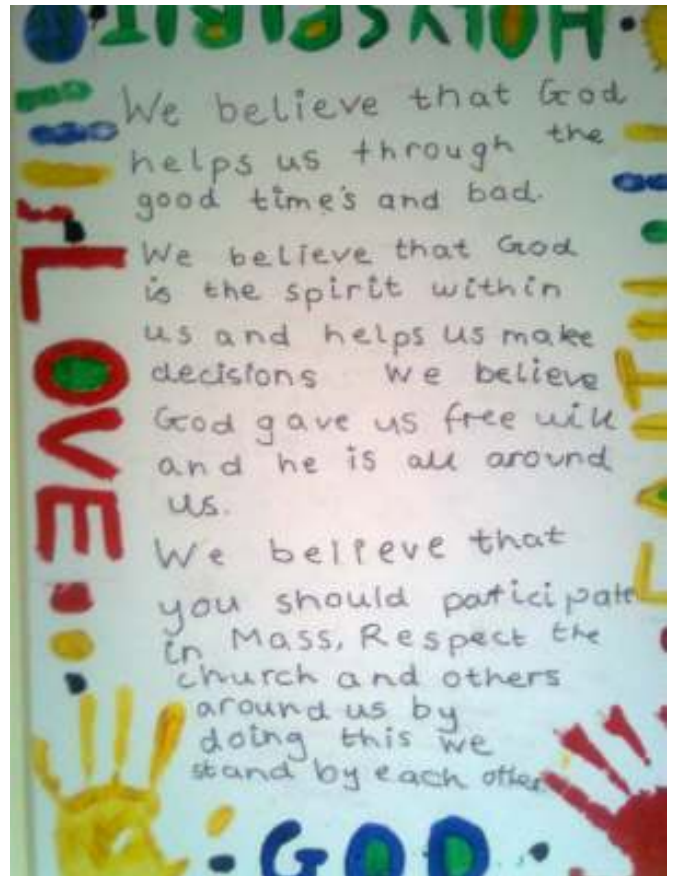 HOLY SPIRIT
We believe that God
helps us through the
good time's and bad.
We believe that God
is the spirit within
us and helps us make
decisions We believe
God gave us free will
and he is all around
us.
We believe that
you should participate
in Mass, Respect the
church and others
around us by
doing this we
stand by each other
LOVE
FAITH
GOD